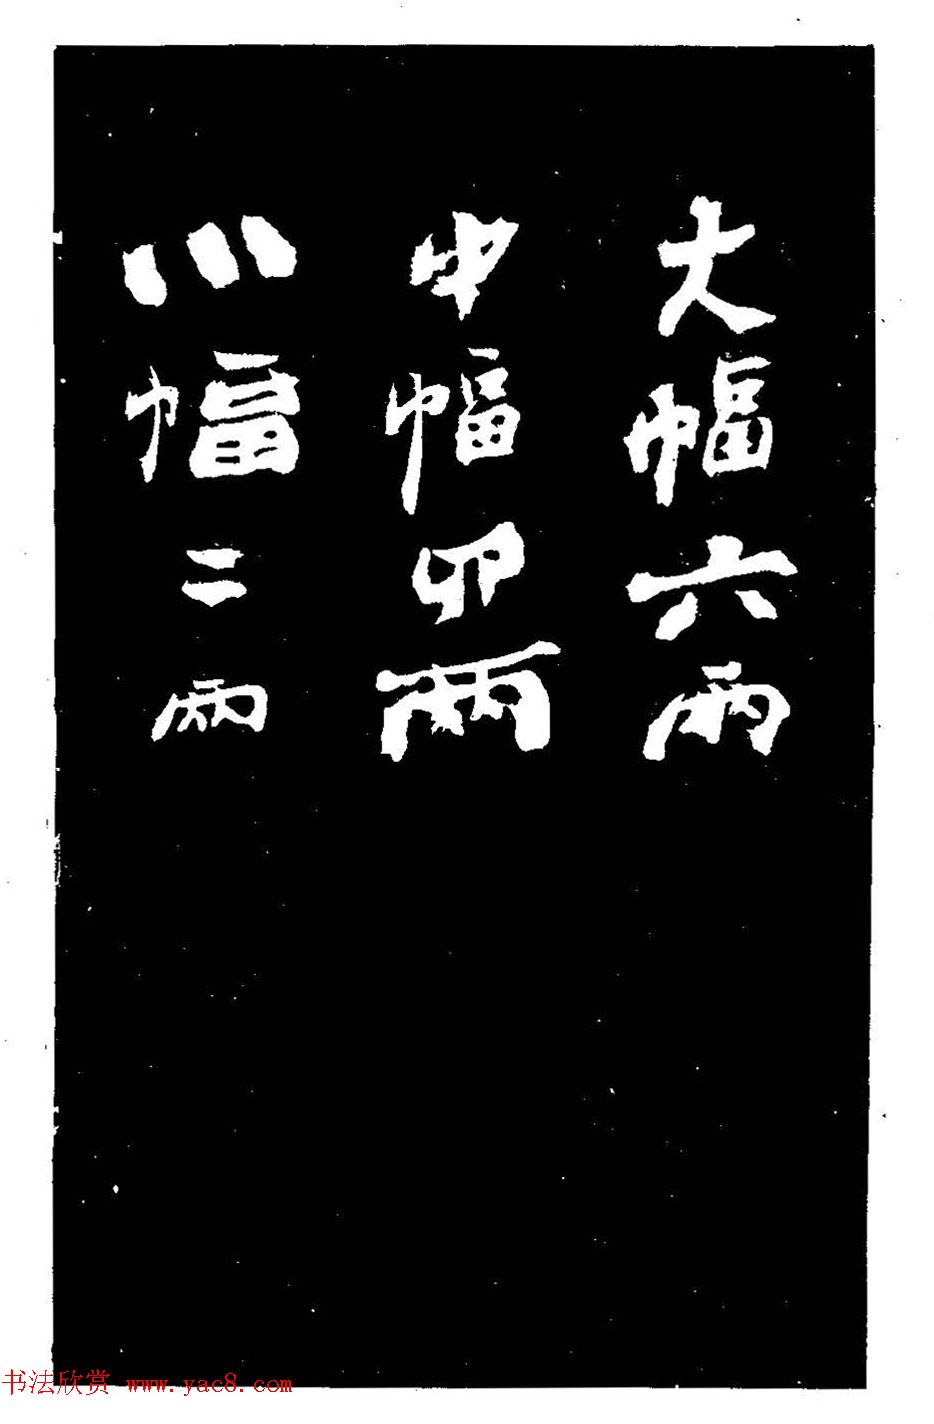 大幅六兩
中幅四兩
小幅二兩
书法欣赏 www.yac8.com